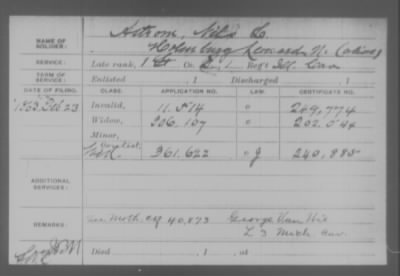 NAME OF SOLDIER: Astrom, Nils L.
Holmburg Leonard N. (alias)
SERVICE: Late rank, Co. Reg't Ill. Cav
TERM OF SERVICE: Enlisted , 1 Discharged , 1
DATE OF FILING. CLASS. APPLICATION NO. LAW. CERTIFICATE NO.
1863 Feb 23 Invalid, 11.514 " 249,774
Widow, 206.107 " 202.044
Minor,
361.622 " 240,885
ADDITIONAL SERVICES:
REMARKS: See Moth. ctf 40,873 George Van
L 3 Mich. Cav.
Died , 1 , at